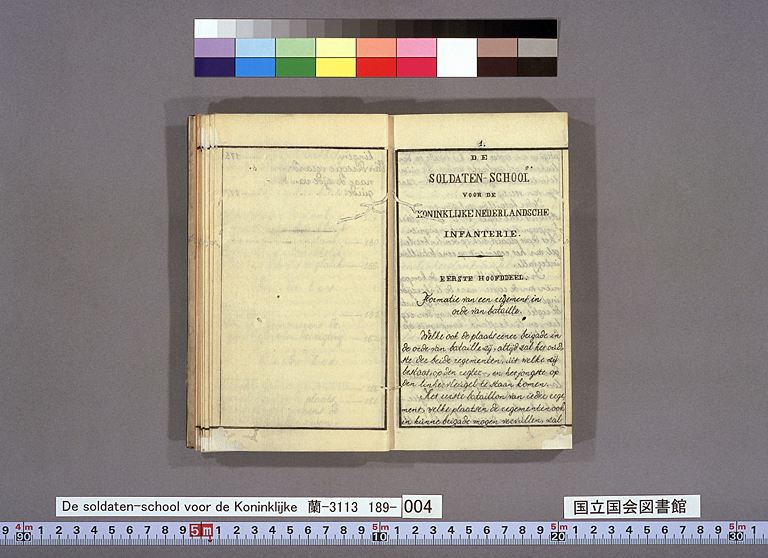 1.
DE
SOLDATEN-SCHOOL
VOOR DE
KONINKLIJKE NEDERLANDSCHE
INFANTERIE.
EERSTE HOOFDDEEL.
Formatie van een regement in
orde van bataille.
Welke ook de plaats eener brigade in
de orde van bataille zij, altijd zal het oud,
ste der beide regementen, uit welke zij
bestaat, op den regter-, en het jongste op
den linkervleugel te staan komen.
Het eerste bataillon van ieder rege
ment, welke plaatsen de regementen ook
in hunne brigade mogen vervullen, zal
De soldaten-school voor de Koninklijke 蘭-3113 189- 004
国立国会図書館
9 4m 90 1 2 3 4 5 6 7 8 9 5m 1 2 3 4 5 6 7 8 9 5m 10 1 2 3 4 5 6 7 8 9 5m 20 1 2 3 4 5 6 7 8 9 5m 30 1